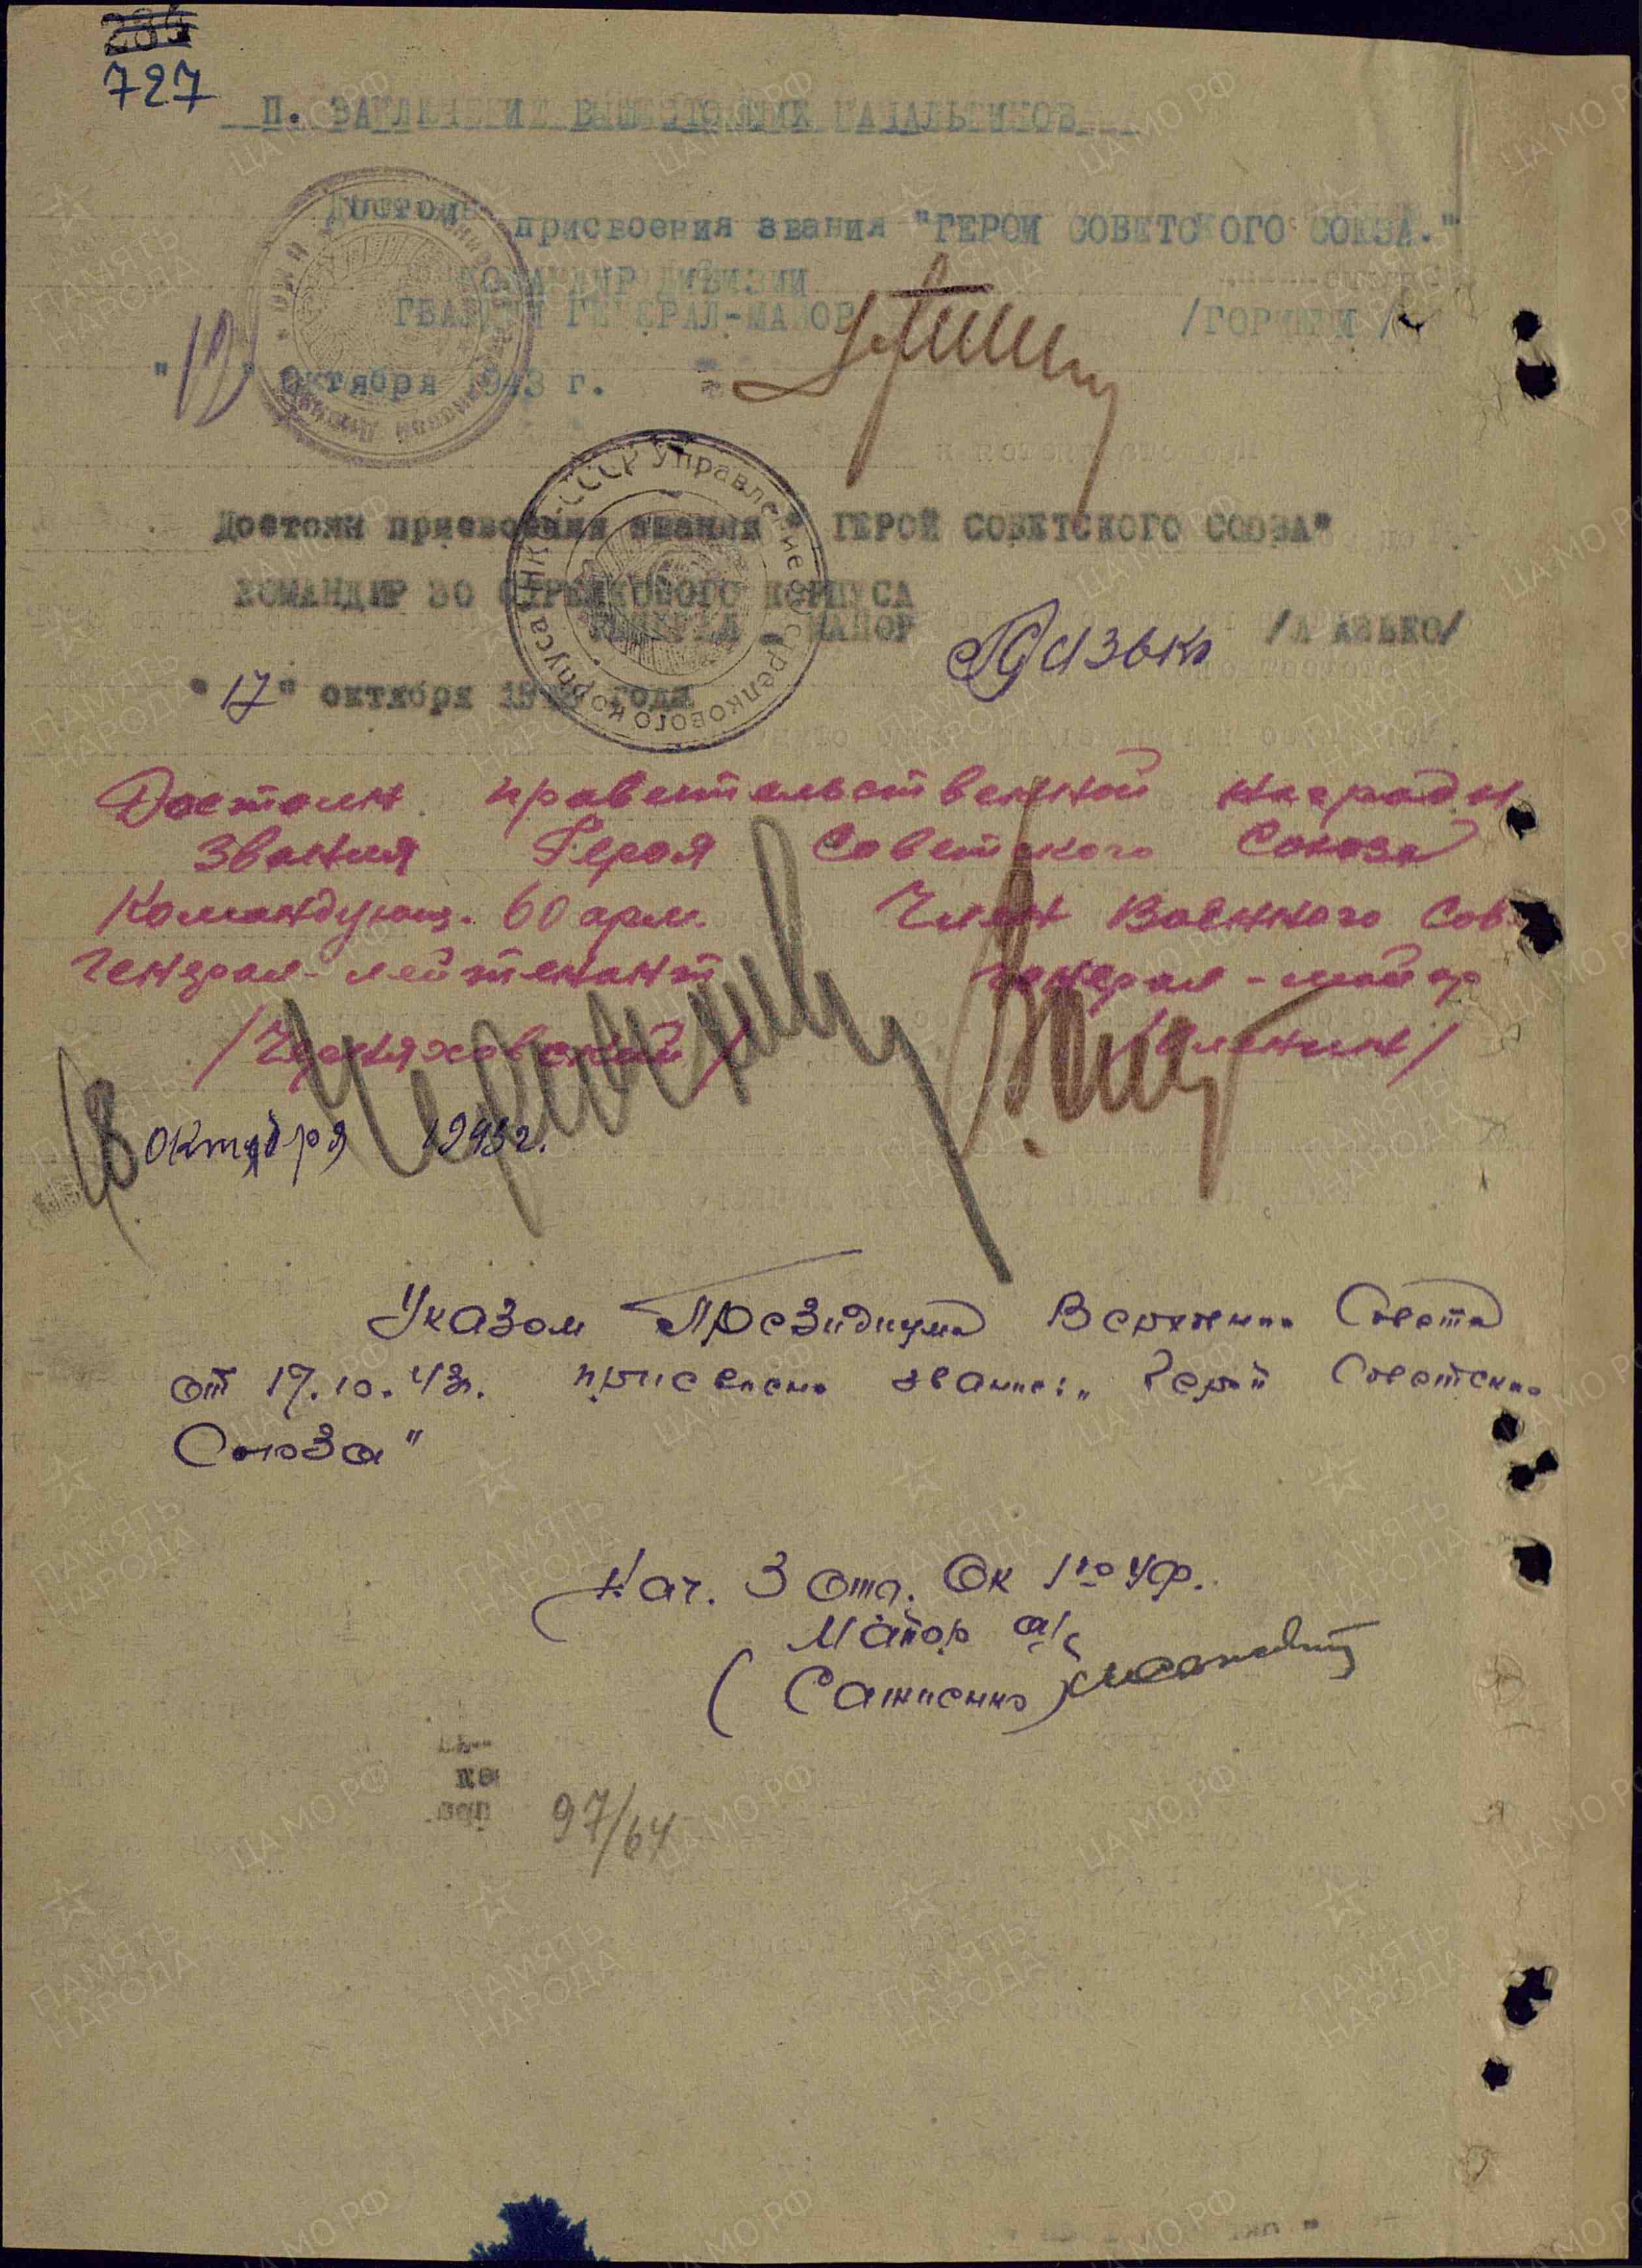 727
П. ЗАКЛЮЧЕНИЕ ВЫШЕСТОЯЩИХ НАЧАЛЬНИКОВ
Достоин присвоения звания "ГЕРОЙ СОВЕТСКОГО СОЮЗА."
КОМАНДИР ДИВИЗИИ
ГВАРДИИ ГЕНЕРАЛ-МАЙОР /ГОРИШНИЙ/
"12" октября 1943 г.
Достоин присвоения звания " ГЕРОЙ СОВЕТСКОГО СОЮЗА"
КОМАНДИР 30 СТРЕЛКОВОГО КОРПУСА
ГЕНЕРАЛ - МАЙОР /ЛАЗЬКО/
"17" октября 1943 года
НКО-СССР Управление 30 стрелкового корпуса
Достоин правительственной награды
звания Героя Советского Союза
Командующ. 60 арм. Член Военного Сов.
генерал-лейтенант генерал-майор
/Черняховский/ /Оленин/
18 октября 1943 г.
Указом Президиума Верховного Совета
от 17.10.43г. присвоено звание: "Герой Советского
Союза"
Нач. 3 отд. ОК 1го УФ.
Майор а/с
97/64
ПАМЯТЬ НАРОДА
ЦА МО РФ